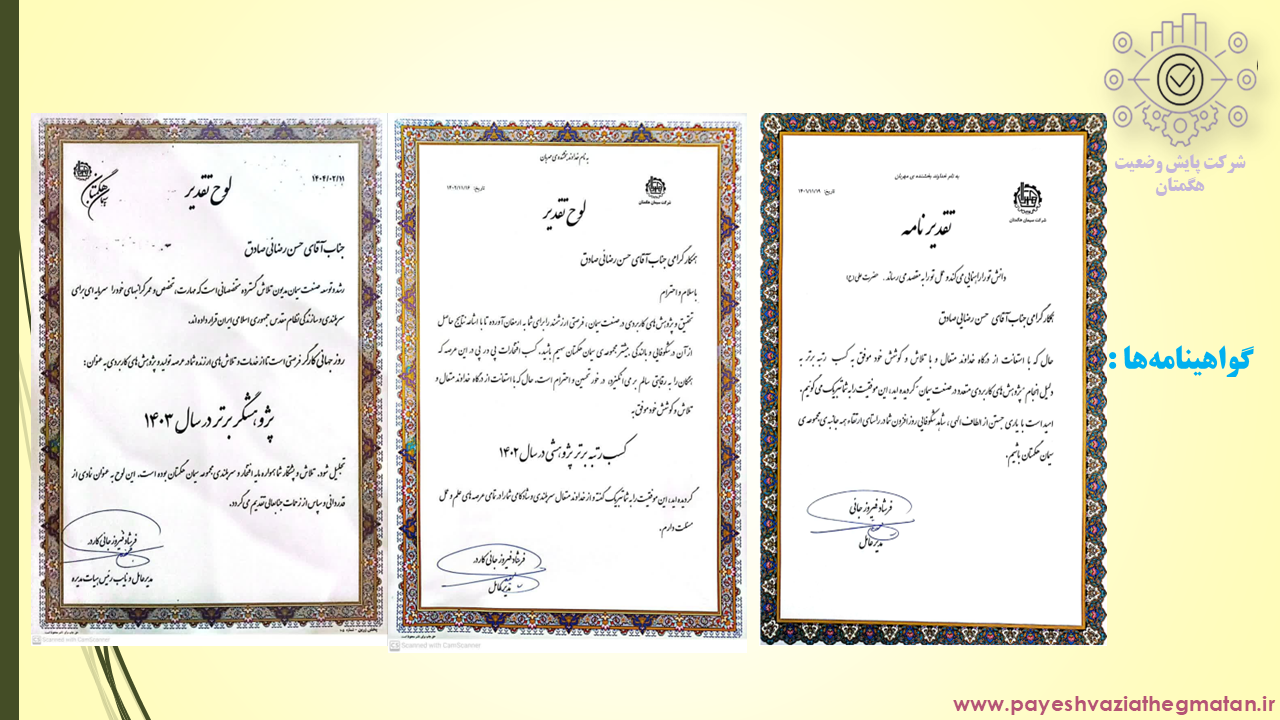 شرکت پایش وضعیت
هگمتان
گواهینامه‌ها :
به نام خداوند بخشنده ی مهربان
تاریخ: ۱۴۰۱/۱۱/۱۹
شرکت سیمان هگمتان
تقدیر نامه
دانش تو را راهنمایی می کند و عمل تو را به مقصد می رساند. حضرت علی (ع)
همکار گرامی جناب آقای حسن رضایی صادق
حال که با استعانت از درگاه خداوند متعال و با تلاش و کوشش خود موفق به کسب رتبه برتر به
دلیل انجام پژوهش های کاربردی متعدد در صنعت سیمان گردیده اید، این موفقیت را به شما تبریک می گوئیم.
امید است با یاری جستن از الطاف الهی، شاهد شکوفایی روز افزون شما در راستای ارتقاء همه جانبه ی مجموعه ی
سیمان هگمتان باشیم.
فرشاد فیروز جانی
مدیر عامل
به نام خداوند بخشنده ی مهربان
تاریخ: ۱۴۰۲/۱۱/۱۶
شرکت سیمان هگمتان
لوح تقدیر
همکار گرامی جناب آقای حسن رضائی صادق
با سلام و احترام
تحقیق و پژوهش های کاربردی در صنعت سیمان، فرصتی ارزشمند را برای شما به ارمغان آورده تا با اشاعه نتایج حاصل
از آن در شکوفائی و بالندگی بیشتر مجموعه ی سیمان هگمتان سهیم باشید. کسب افتخارات پی در پی در این عرصه که
همگان را به رقابتی سالم بر می انگیزد، در خور تحسین و احترام است. حال که با استعانت از درگاه خداوند متعال و
تلاش و کوشش خود موفق به
کسب رتبه برتر پژوهشی در سال ۱۴۰۲
گردیده اید، این موفقیت را به شما تبریک گفته و از خداوند متعال سرافرازی و شادکامی شما را در تمامی عرصه های علم و عمل
مسئلت دارم.
فرشاد فیروز جانی کارد
مدیر عامل
CS Scanned with CamScanner
۱۴۰۴/۰۲/۱۱
سیمان هگمتان
لوح تقدیر
جناب آقای حسن رضائی صادق
رشد و توسعه صنعت سیمان مدیون تلاش گسترده متخصصانی است که مهارت، تخصص و عمر گرانبهای خود را سرمایه ای برای
سربلندی و سازندگی نظام مقدس جمهوری اسلامی ایران قرار داده اند.
روز جهانی کارگر فرصتی است تا از خدمات و تلاش های ارزنده شما در عرصه تولید و پژوهش های کاربردی به عنوان:
پژوهشگر برتر در سال ۱۴۰۳
تجلیل شود. تلاش و پشتکار شما همواره مایه افتخار و سربلندی مجموعه سیمان هگمتان بوده است. این لوح به عنوان نمادی از
قدردانی و سپاس از زحمات جنابعالی تقدیم می گردد.
فرشاد فیروز جانی کارد
مدیر عامل و نایب رئیس هیات مدیره
CS Scanned with CamScanner
www.payeshvaziathegmatan.ir